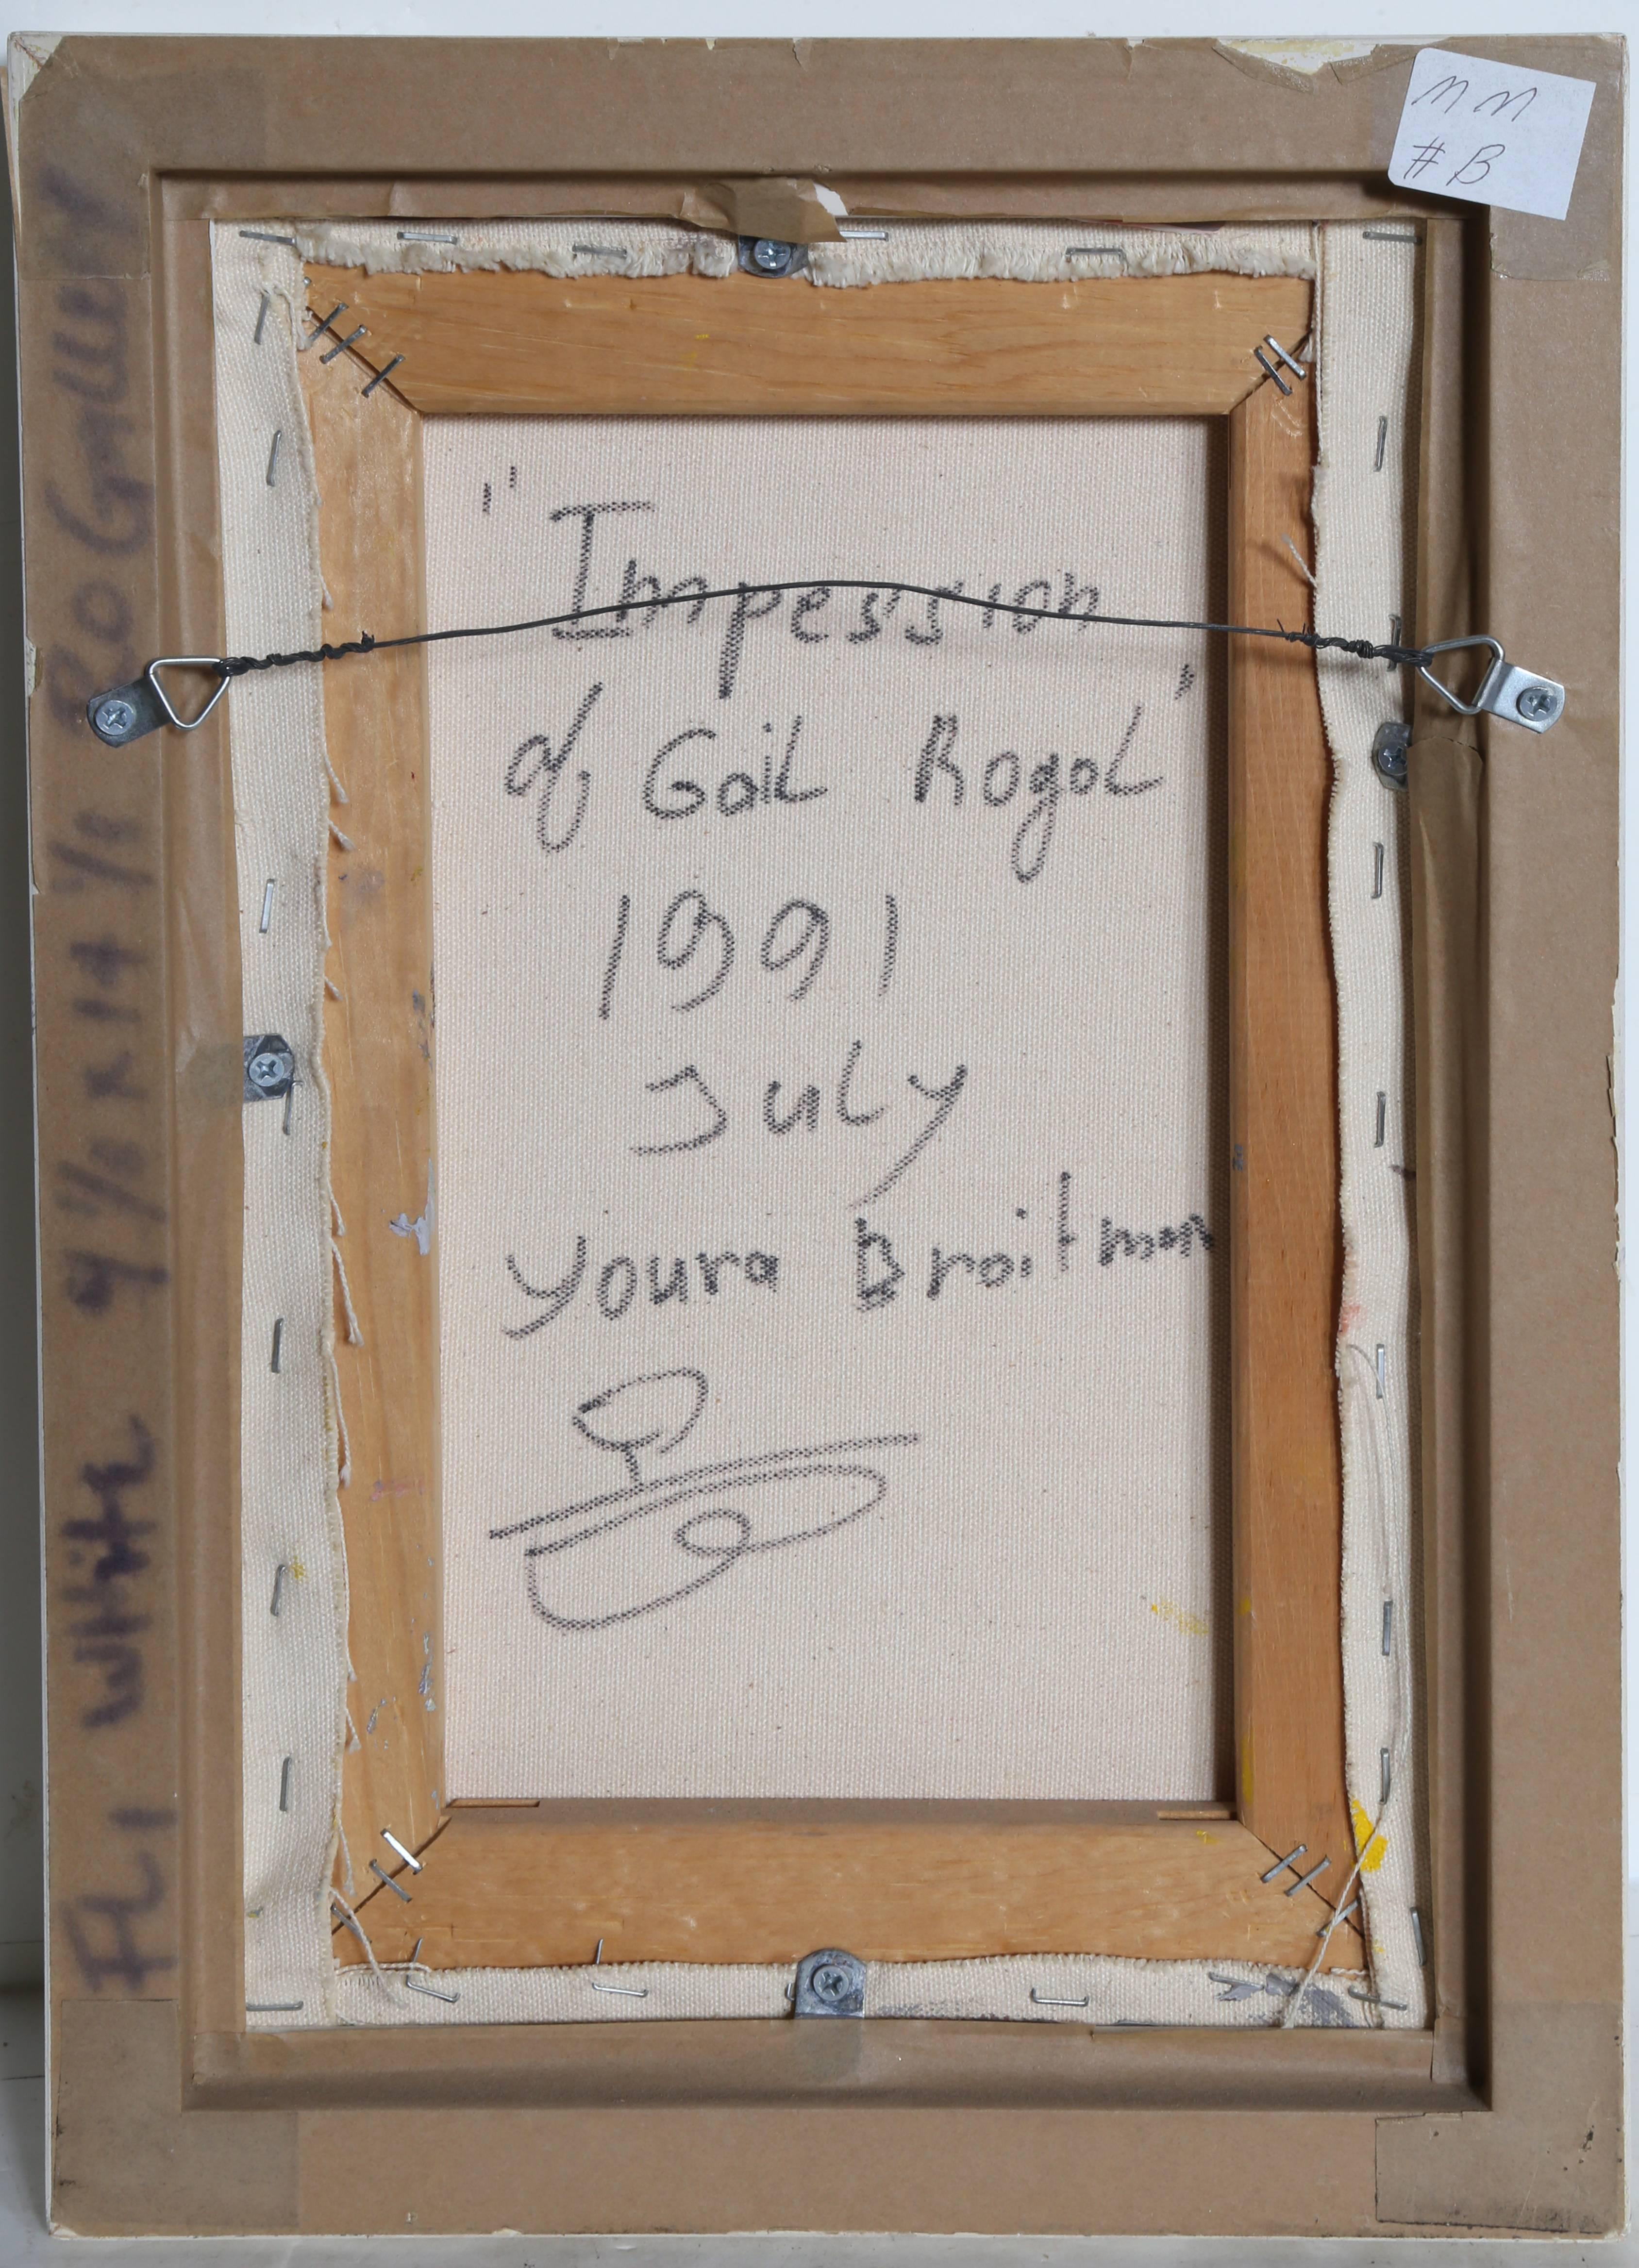 M M
# B
"Impession
of Gail Rogol"
1991
July
Youra Broitman
FLI White 9 1/2 x 14 1/8 RO Gallery